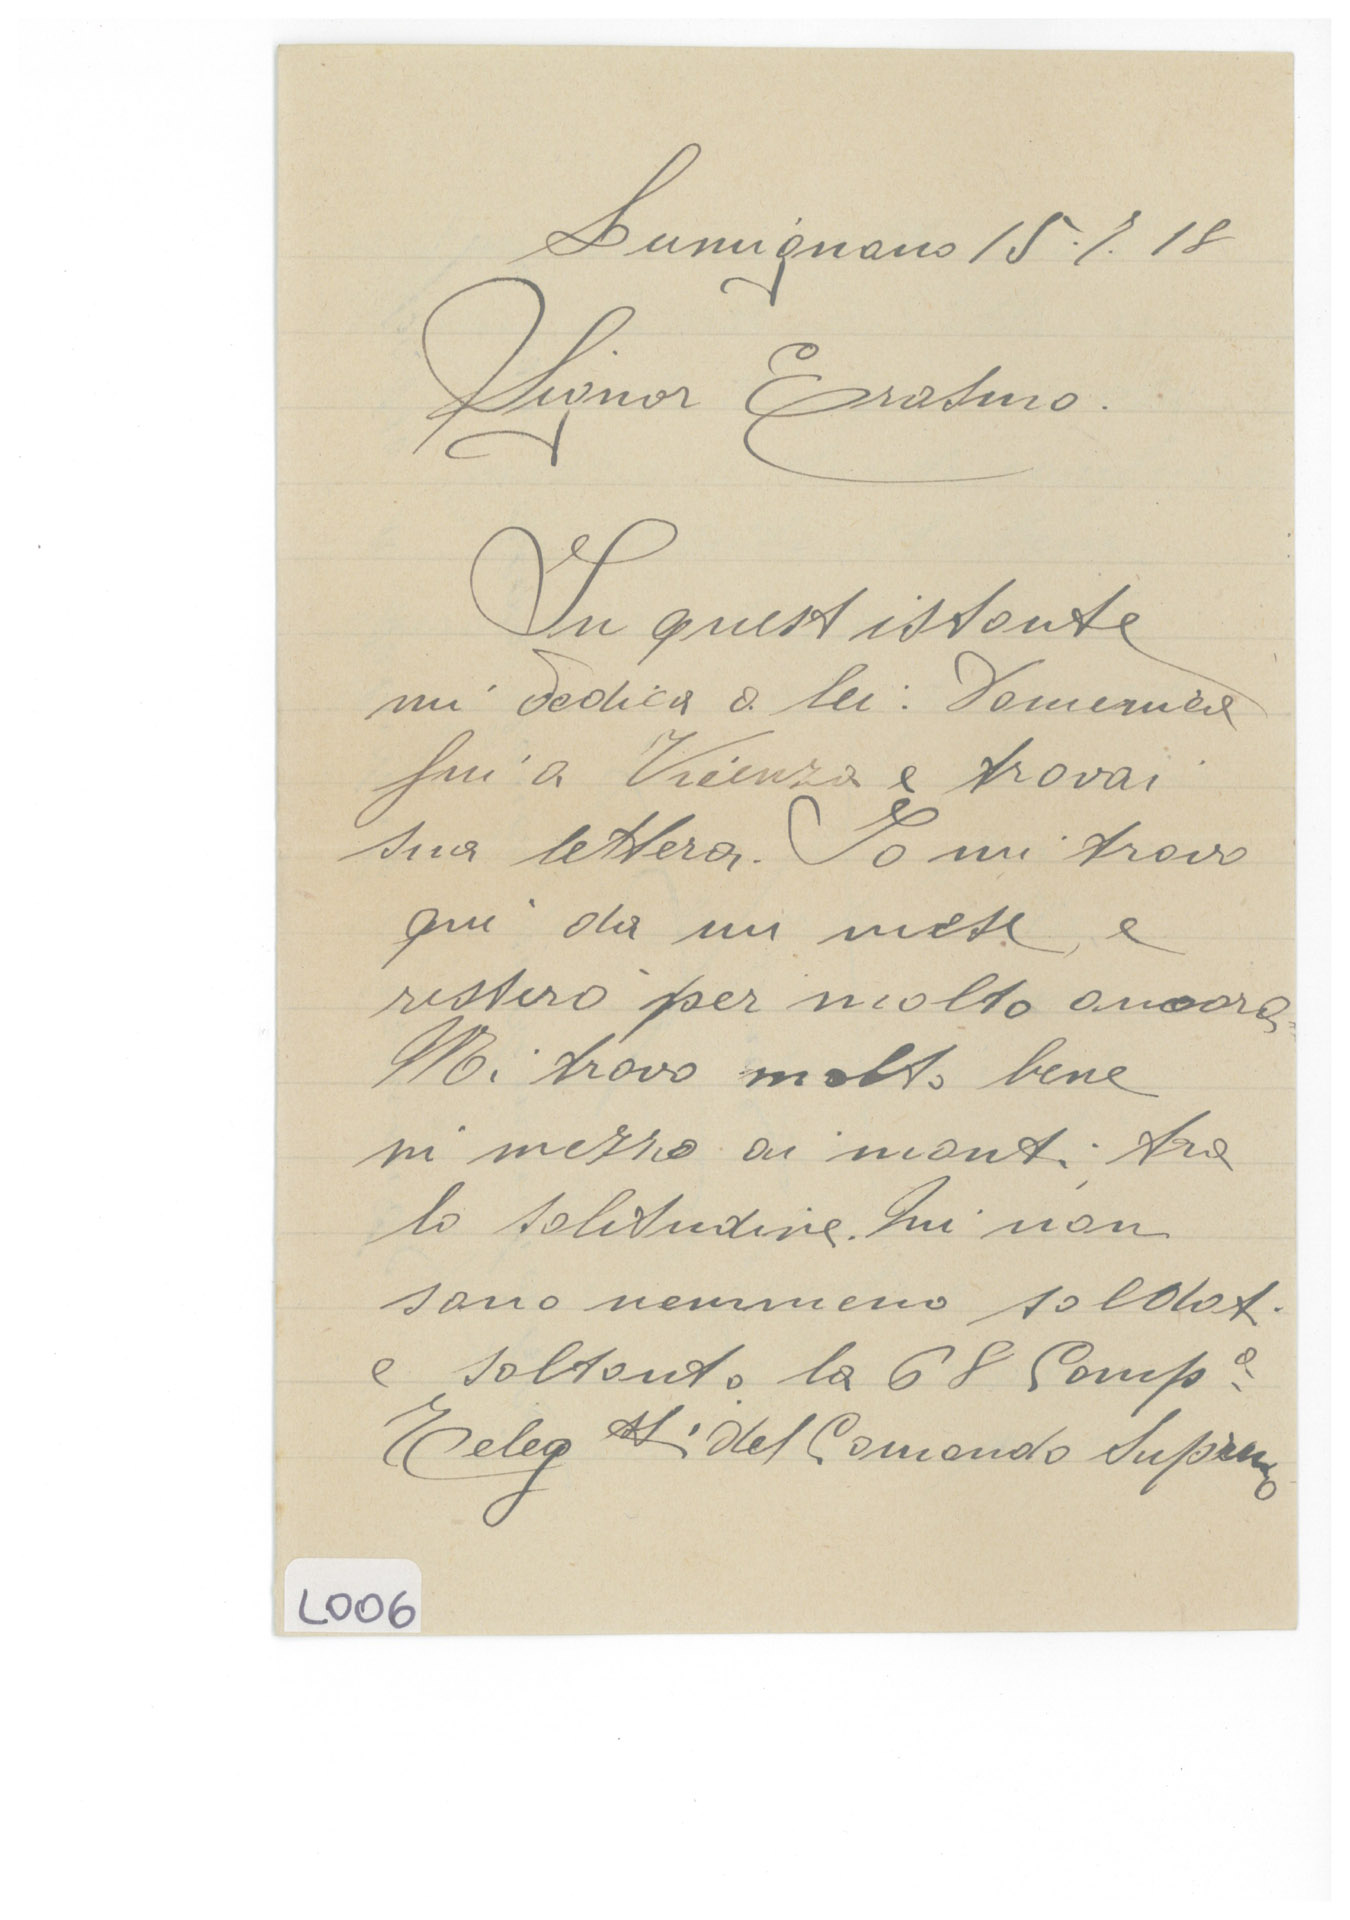 Lumignano 15.7.18
Signor Erasmo.
In quest istante
mi dedica a lei: Domenica
fui a Vicenza e trovai
sua lettera. Io mi trovo
qui da un mese, e
resterò per molto ancora
Mi trovo molto bene
in mezzo ai monti, tra
la solitudine. Qui non
sono nemmeno soldati
e soltanto la 68 Compª
Teleg sti del Comando Supremo
L006